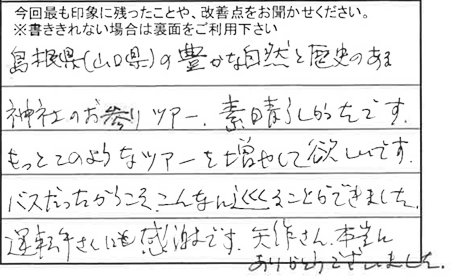 今回最も印象に残ったことや、改善点をお聞かせください。
※書ききれない場合は裏面をご利用下さい
島根県(山口県)の豊かな自然と歴史のある
神社のお参りツアー、素晴らしかったです。
もっとこのようなツアーを増やして欲しいです。
バスだったからこそ、こんなに巡くくることができました。
運転手さんにも感謝です。矢作さん、本当に
ありがとうございました。